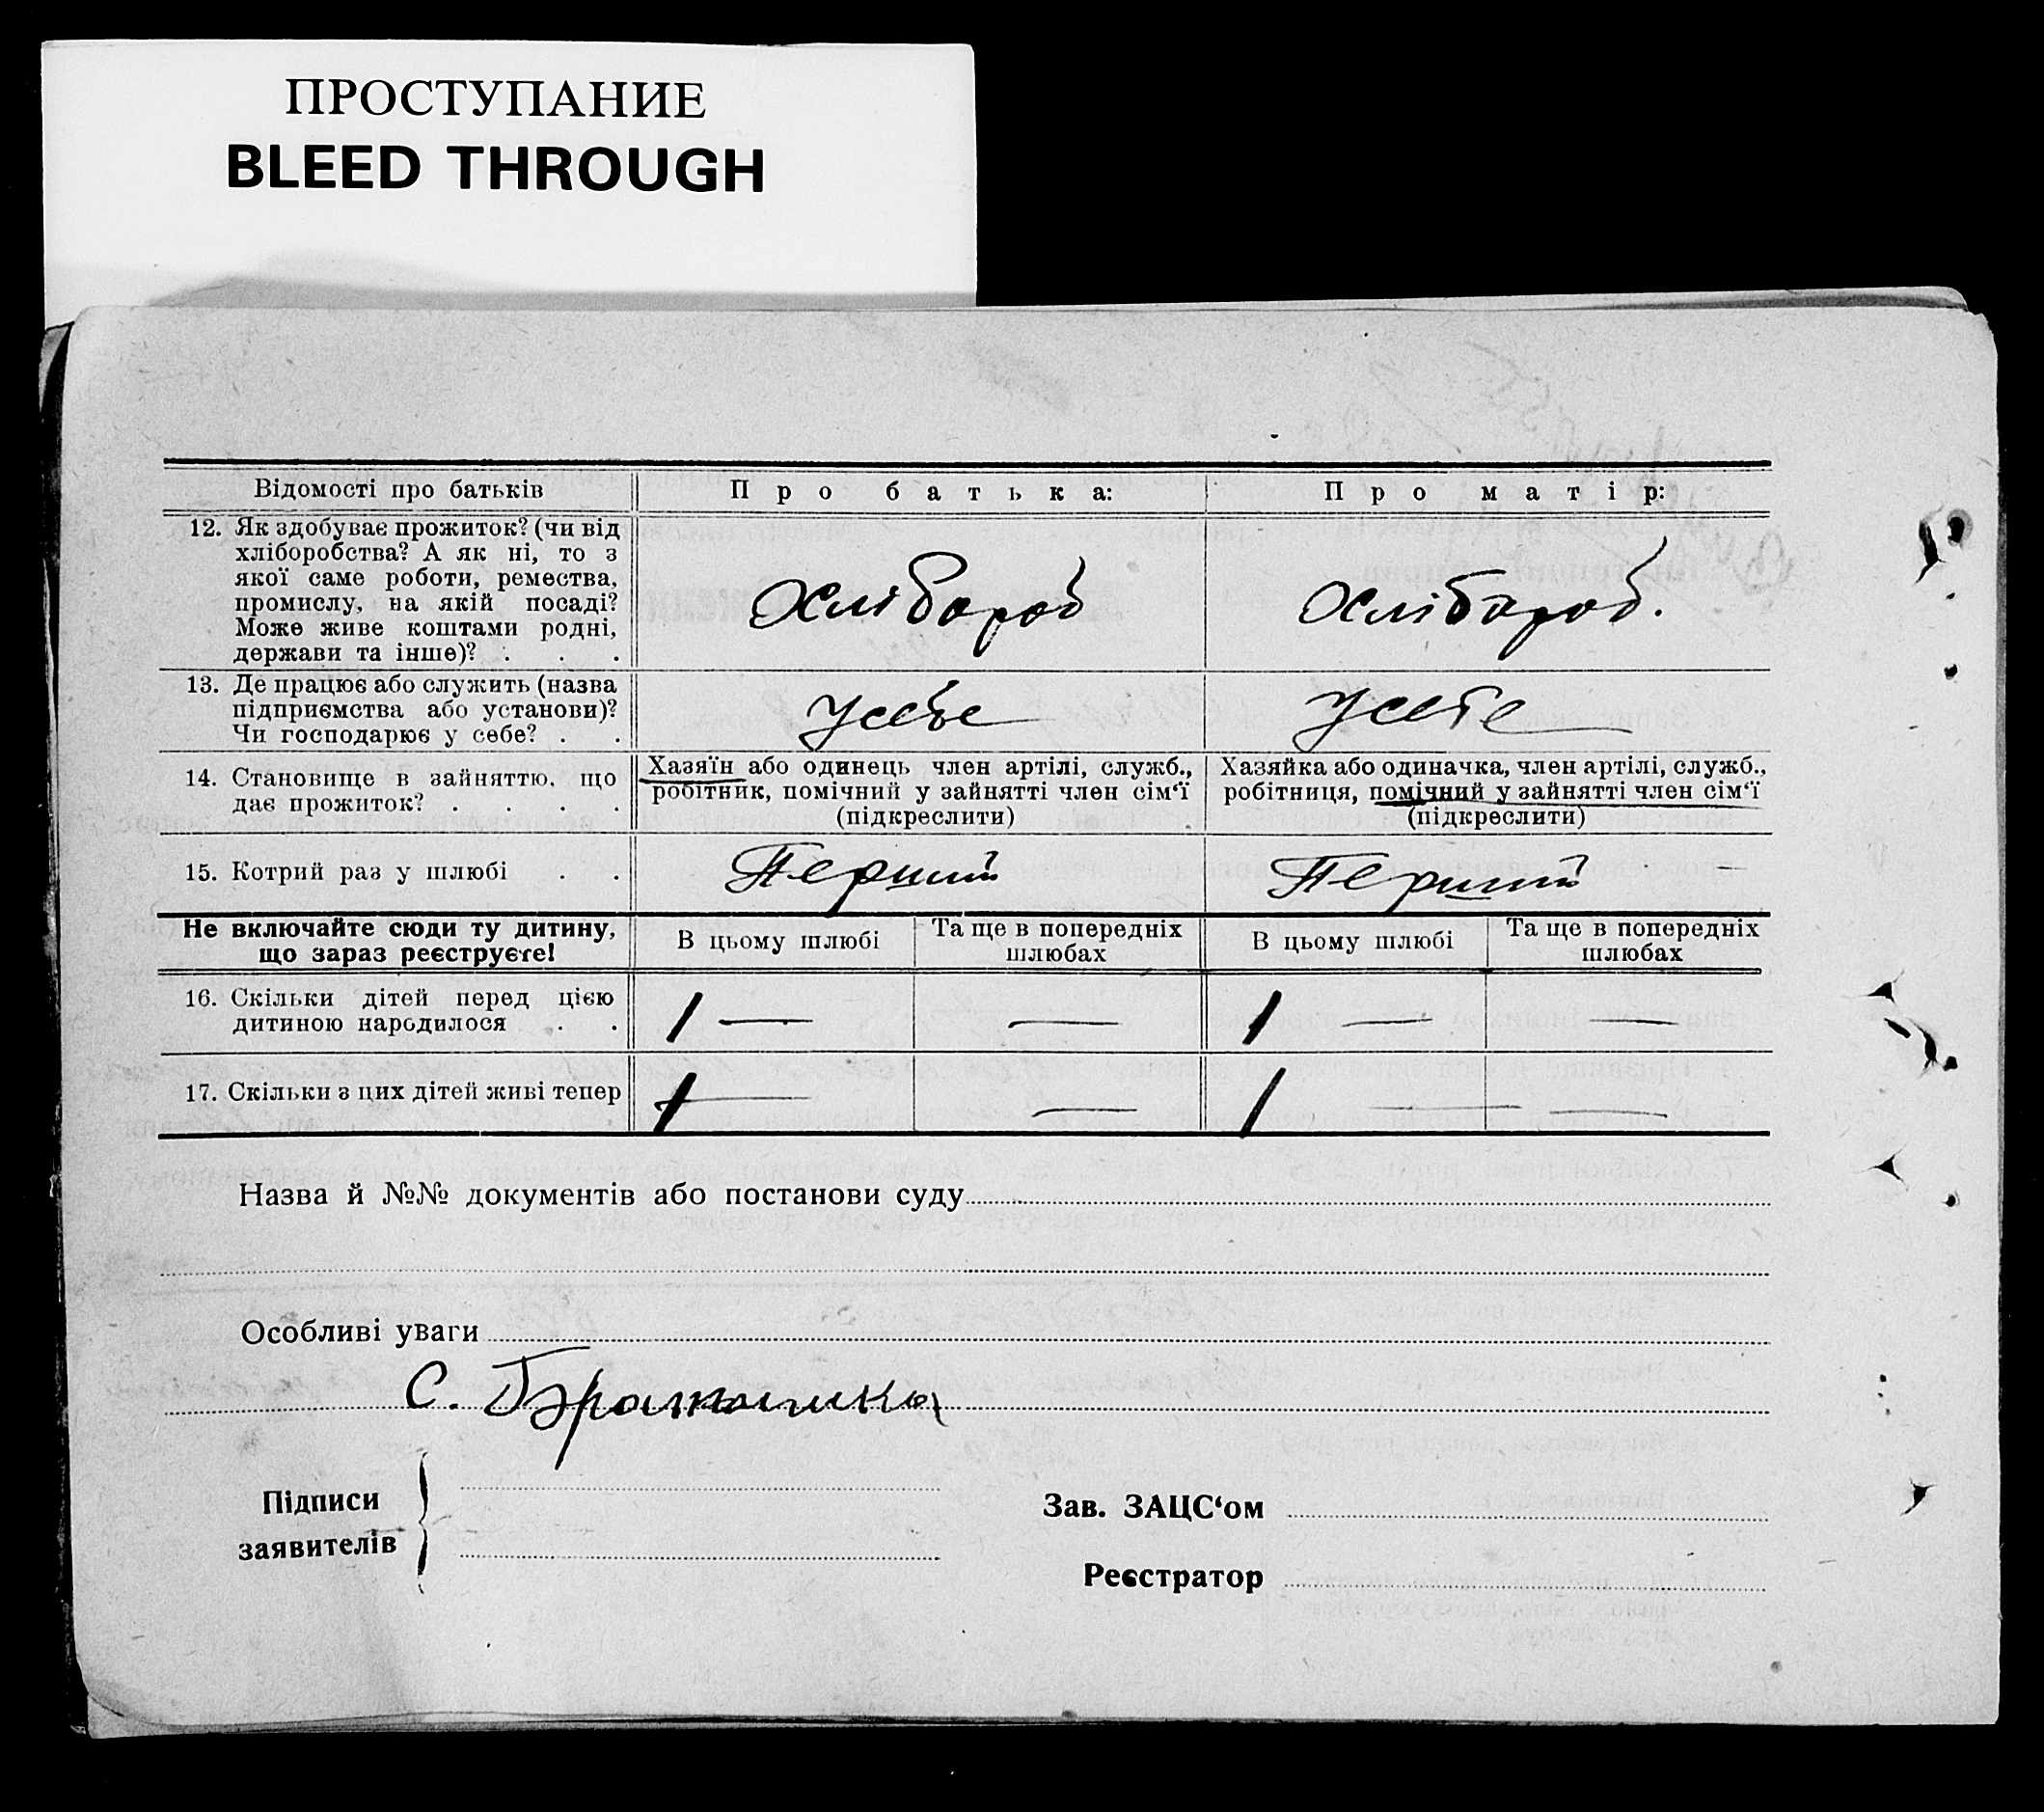 ПРОСТУПАНИЕ
BLEED THROUGH
Відомості про батьків
Про батька:
Про матір:
12. Як здобуває прожиток? (чи від
хліборобства? А як ні, то з
якої саме роботи, ремества,
промислу, на якій посаді?
Може живе коштами родні,
держави та інше)? . . .
Хлібороб
Хлібороб.
13. Де працює або служить (назва
підприємства або установи)?
Чи господарює у себе? . .
У себе
У себе
14. Становище в зайняттю, що
дає прожиток? . . . .
Хазяїн або одинець член артілі, служб.,
робітник, помічний у зайнятті член сім‘ї
(підкреслити)
Хазяйка або одиначка, член артілі, служб.,
робітниця, помічний у зайнятті член сім‘ї
(підкреслити)
15. Котрий раз у шлюбі . .
Перший
Перший
Не включайте сюди ту дитину,
що зараз реєструєте!
В цьому шлюбі
Та ще в попередніх
шлюбах
В цьому шлюбі
Та ще в попередніх
шлюбах
16. Скільки дітей перед цією
дитиною народилося . .
1 —
—
1 —
—
17. Скільки з цих дітей живі тепер
1 —
—
1 —
—
Назва й №№ документів або постанови суду
Особливі уваги
С.
Підписи
заявителів
Зав. ЗАЦС‘ом
Реєстратор